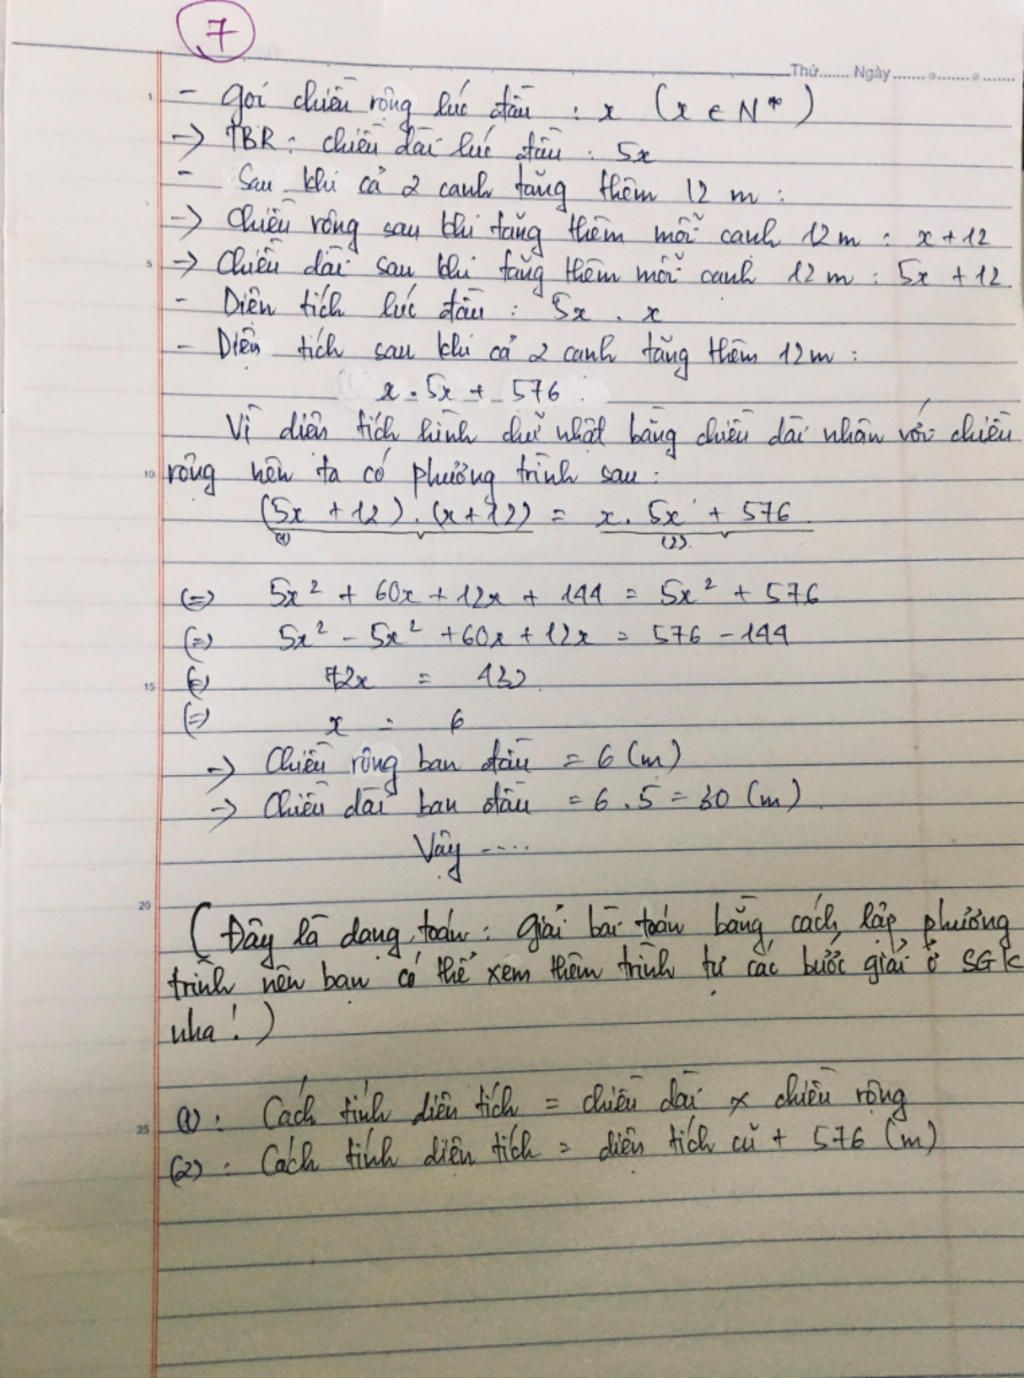 7
Thứ...... Ngày.......................
1 - Gọi chiều rộng lúc đầu : x (x ∈ N*)
→ TBR : chiều dài lúc đầu : 5x
- Sau khi cả 2 cạnh tăng thêm 12 m :
→ Chiều rộng sau khi tăng thêm mỗi cạnh 12m : x + 12
5 → Chiều dài sau khi tăng thêm mỗi cạnh 12m : 5x + 12
- Diện tích lúc đầu : 5x . x
- Diện tích sau khi cả 2 cạnh tăng thêm 12m :
x . 5x + 576
Vì diện tích hình chữ nhật bằng chiều dài nhân với chiều
10 rộng nên ta có phương trình sau :
(5x + 12) . (x + 12) = x . 5x + 576
(1) (2)
(=) 5x² + 60x + 12x + 144 = 5x² + 576
(=) 5x² - 5x² + 60x + 12x = 576 - 144
15 (=) 72x = 432
(=) x = 6
→ Chiều rộng ban đầu = 6 (m)
→ Chiều dài ban đầu = 6 . 5 = 30 (m)
Vậy ....
20 (Đây là dạng toán : giải bài toán bằng cách lập phương
trình nên bạn có thể xem thêm trình tự các bước giải ở SGK
nha ! )
25 (1) : Cách tính diện tích = chiều dài x chiều rộng
(2) : Cách tính diện tích = diện tích cũ + 576 (m)